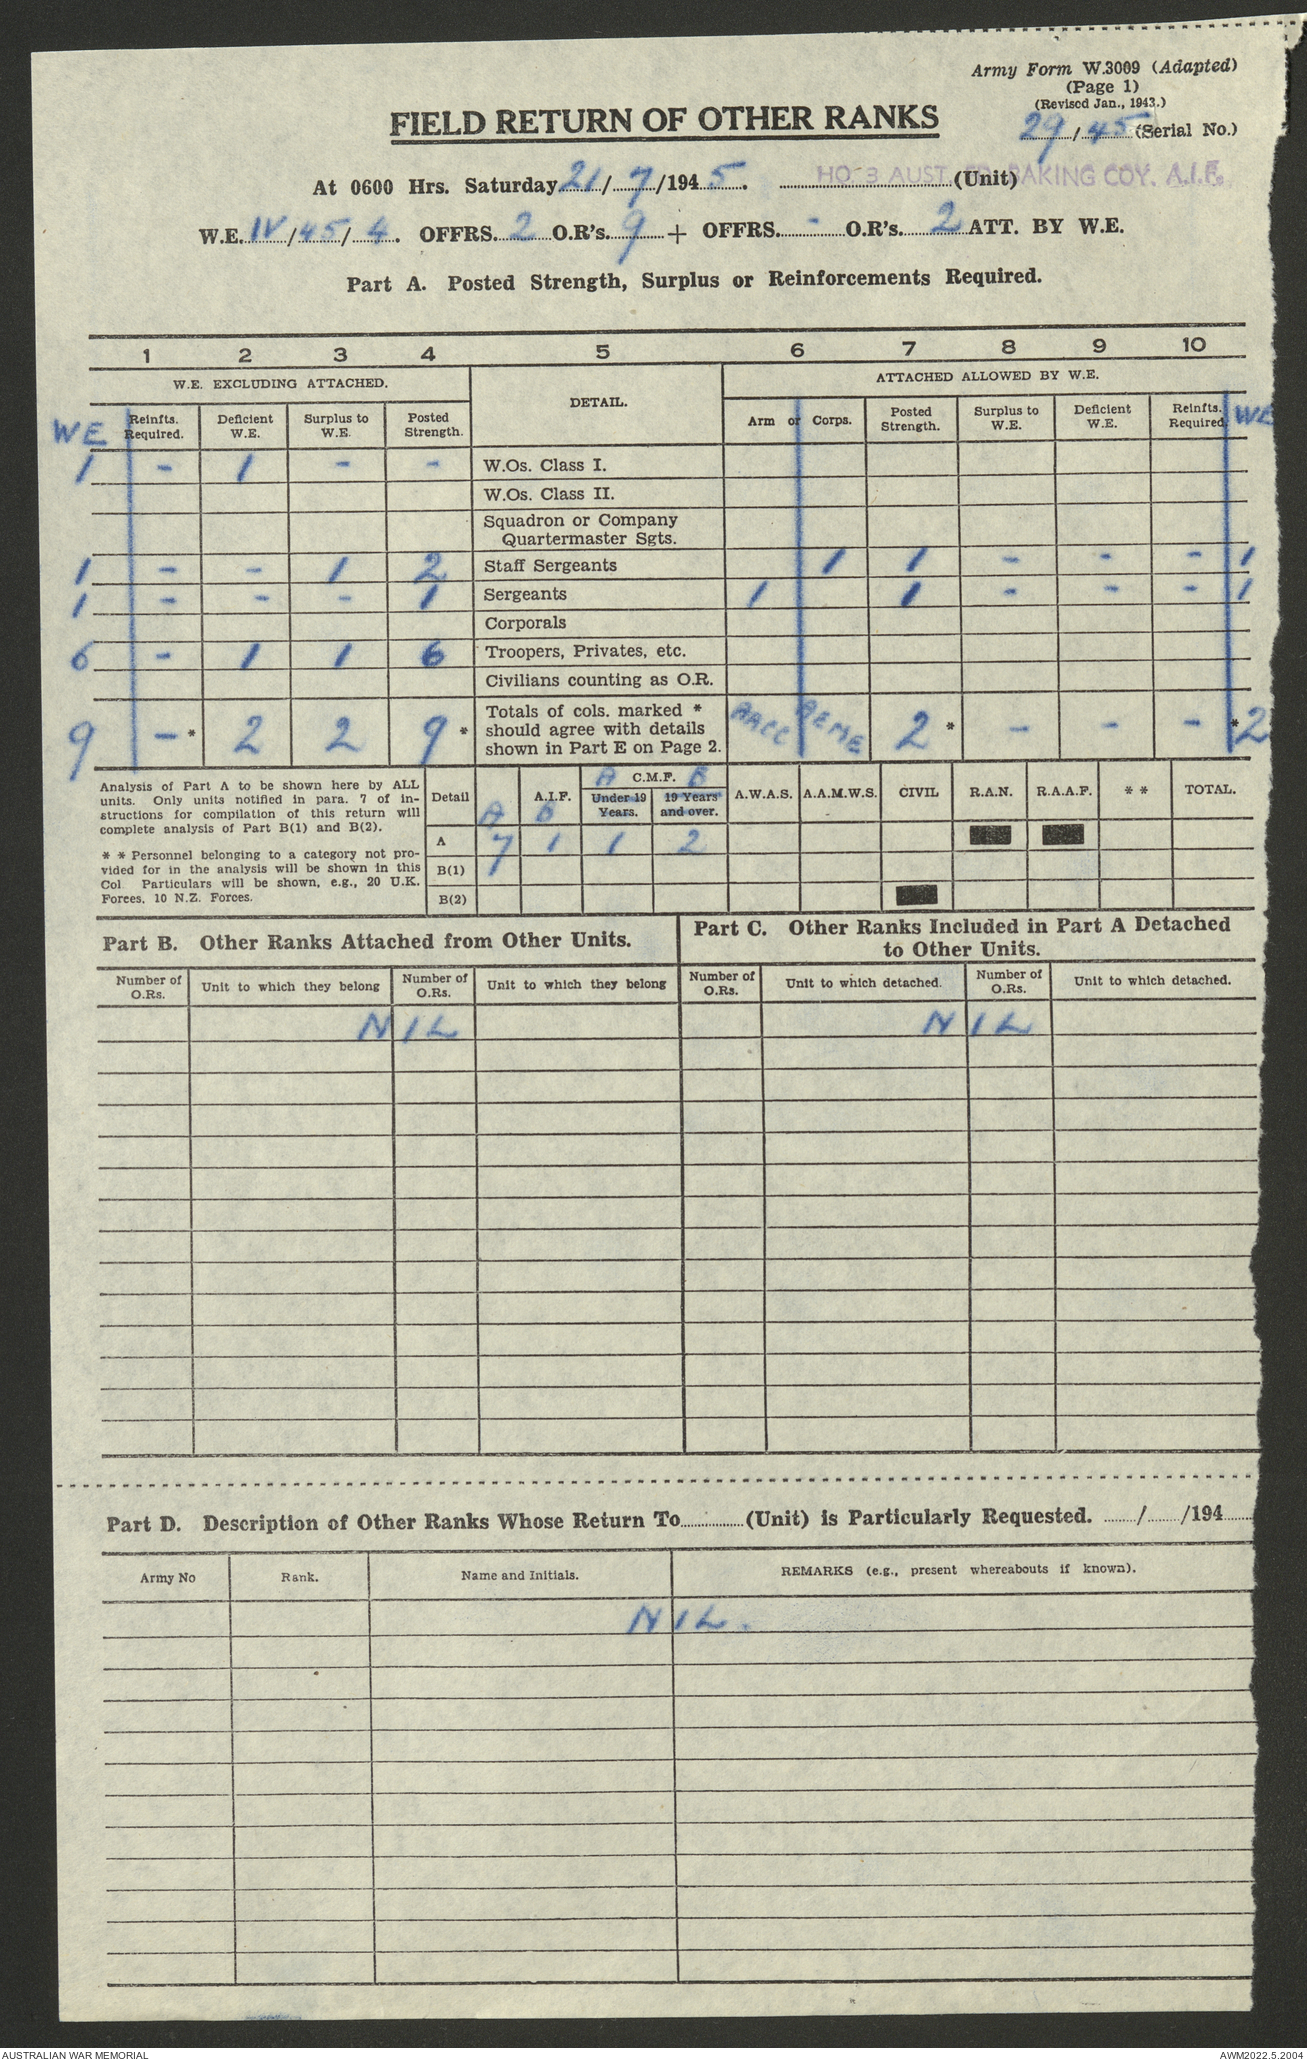 Army Form W.3009 (Adapted)
(Page 1)
(Revised Jan., 1943.)
29/45 (Serial No.)
FIELD RETURN OF OTHER RANKS
At 0600 Hrs. Saturday 21/7/1945. HQ 3 AUST. FD. BAKING COY. A.I.F. (Unit)
W.E. IV/45/4. OFFRS. 2 O.R's. 9 + OFFRS. - O.R's. 2 ATT. BY W.E.
Part A. Posted Strength, Surplus or Reinforcements Required.
1 2 3 4 5 6 7 8 9 10
W.E. EXCLUDING ATTACHED. DETAIL. ATTACHED ALLOWED BY W.E.
WE Reinfts. Required. Deficient W.E. Surplus to W.E. Posted Strength. Arm or Corps. Posted Strength. Surplus to W.E. Deficient W.E. Reinfts. Required. WE
1 - 1 - - W.Os. Class I.
W.Os. Class II.
Squadron or Company
Quartermaster Sgts.
1 - - 1 2 Staff Sergeants 1 1 - - - 1
1 - - - 1 Sergeants 1 1 - - - 1
Corporals
6 - 1 1 6 Troopers, Privates, etc.
Civilians counting as O.R.
9 -* 2 2 9* Totals of cols. marked * should agree with details shown in Part E on Page 2. AACC AEME 2* - - - *2
Analysis of Part A to be shown here by ALL
units. Only units notified in para. 7 of in-
structions for compilation of this return will
complete analysis of Part B(1) and B(2).
* * Personnel belonging to a category not pro-
vided for in the analysis will be shown in this
Col. Particulars will be shown, e.g., 20 U.K.
Forces, 10 N.Z. Forces.
Detail A A.I.F. B A C.M.F. B Under 19 Years. 19 Years and over. A.W.A.S. A.A.M.W.S. CIVIL R.A.N. R.A.A.F. * * TOTAL.
A 7 1 1 2
B(1)
B(2)
Part B. Other Ranks Attached from Other Units.
Part C. Other Ranks Included in Part A Detached
to Other Units.
Number of O.Rs. Unit to which they belong Number of O.Rs. Unit to which they belong Number of O.Rs. Unit to which detached. Number of O.Rs. Unit to which detached.
NIL NIL
Part D. Description of Other Ranks Whose Return To (Unit) is Particularly Requested. / /194
Army No Rank. Name and Initials. REMARKS (e.g., present whereabouts if known).
NIL.
AUSTRALIAN WAR MEMORIAL
AWM2022.5.2004